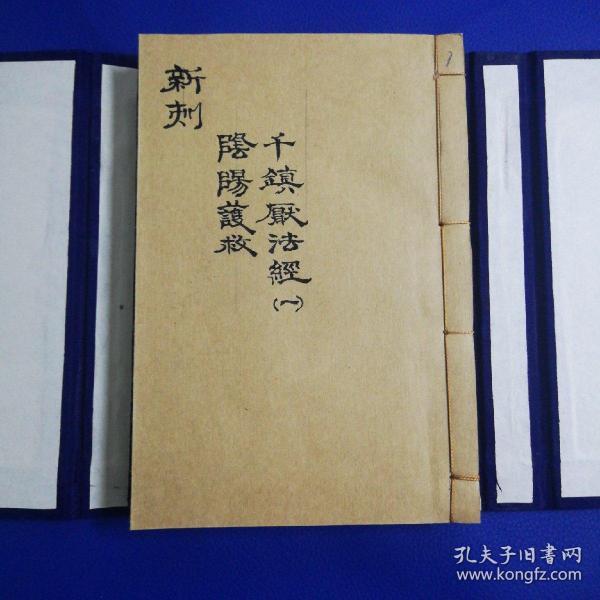 新刻
陰陽護救
千鎮厭法經(一)
1
孔夫子旧書网
www.kongfz.com